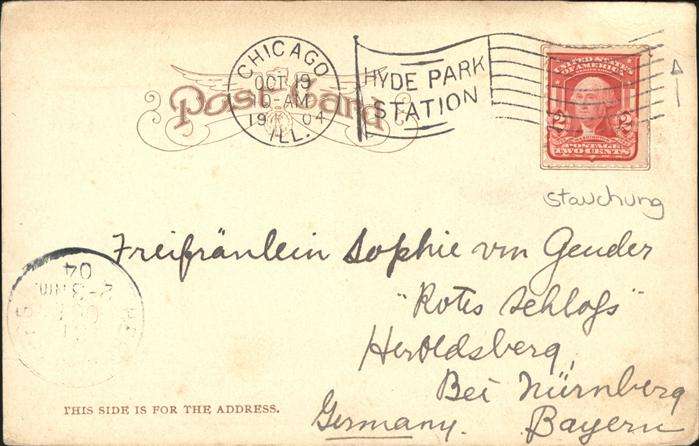 Post Card
CHICAGO
OCT 19
1904
ILL.
HYDE PARK
STATION
UNITED STATES
OF AMERICA
2 2
POSTAGE
TWO CENTS
stauchung
Freifränlein Sophie von Geuder
"Rotes Schloſs"
Heroldsberg,
Bei Nürnberg
Germany. Bayern
04
THIS SIDE IS FOR THE ADDRESS.